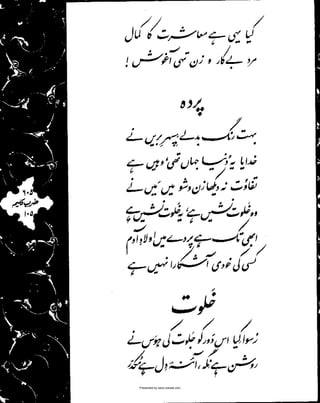 کیا یہی ہے معاشرت کا کمال
مرد بے کار و زن تہی آغوش !
پردہ
بہت رنگ بدلے سپہر بریں نے
خدایا یہ دنیا جہاں تھی وہیں ہے
تفاوت نہ دیکھا زن و شو میں میں نے
وہ خلوت نشیں ہے ، یہ خلوت نشیں ہے
ابھی تک ہے پردے میں اولاد آدم
کسی کی خودی آشکارا نہیں ہے
خلوت
رسوا کیا اس دور کو جلوت کی ہوس نے
روشن ہے نگہ ، آئنہ دل ہے مکدر
۶۰۵
ضرب کلیم
۱۰۵
Presented by www.ziaraat.com